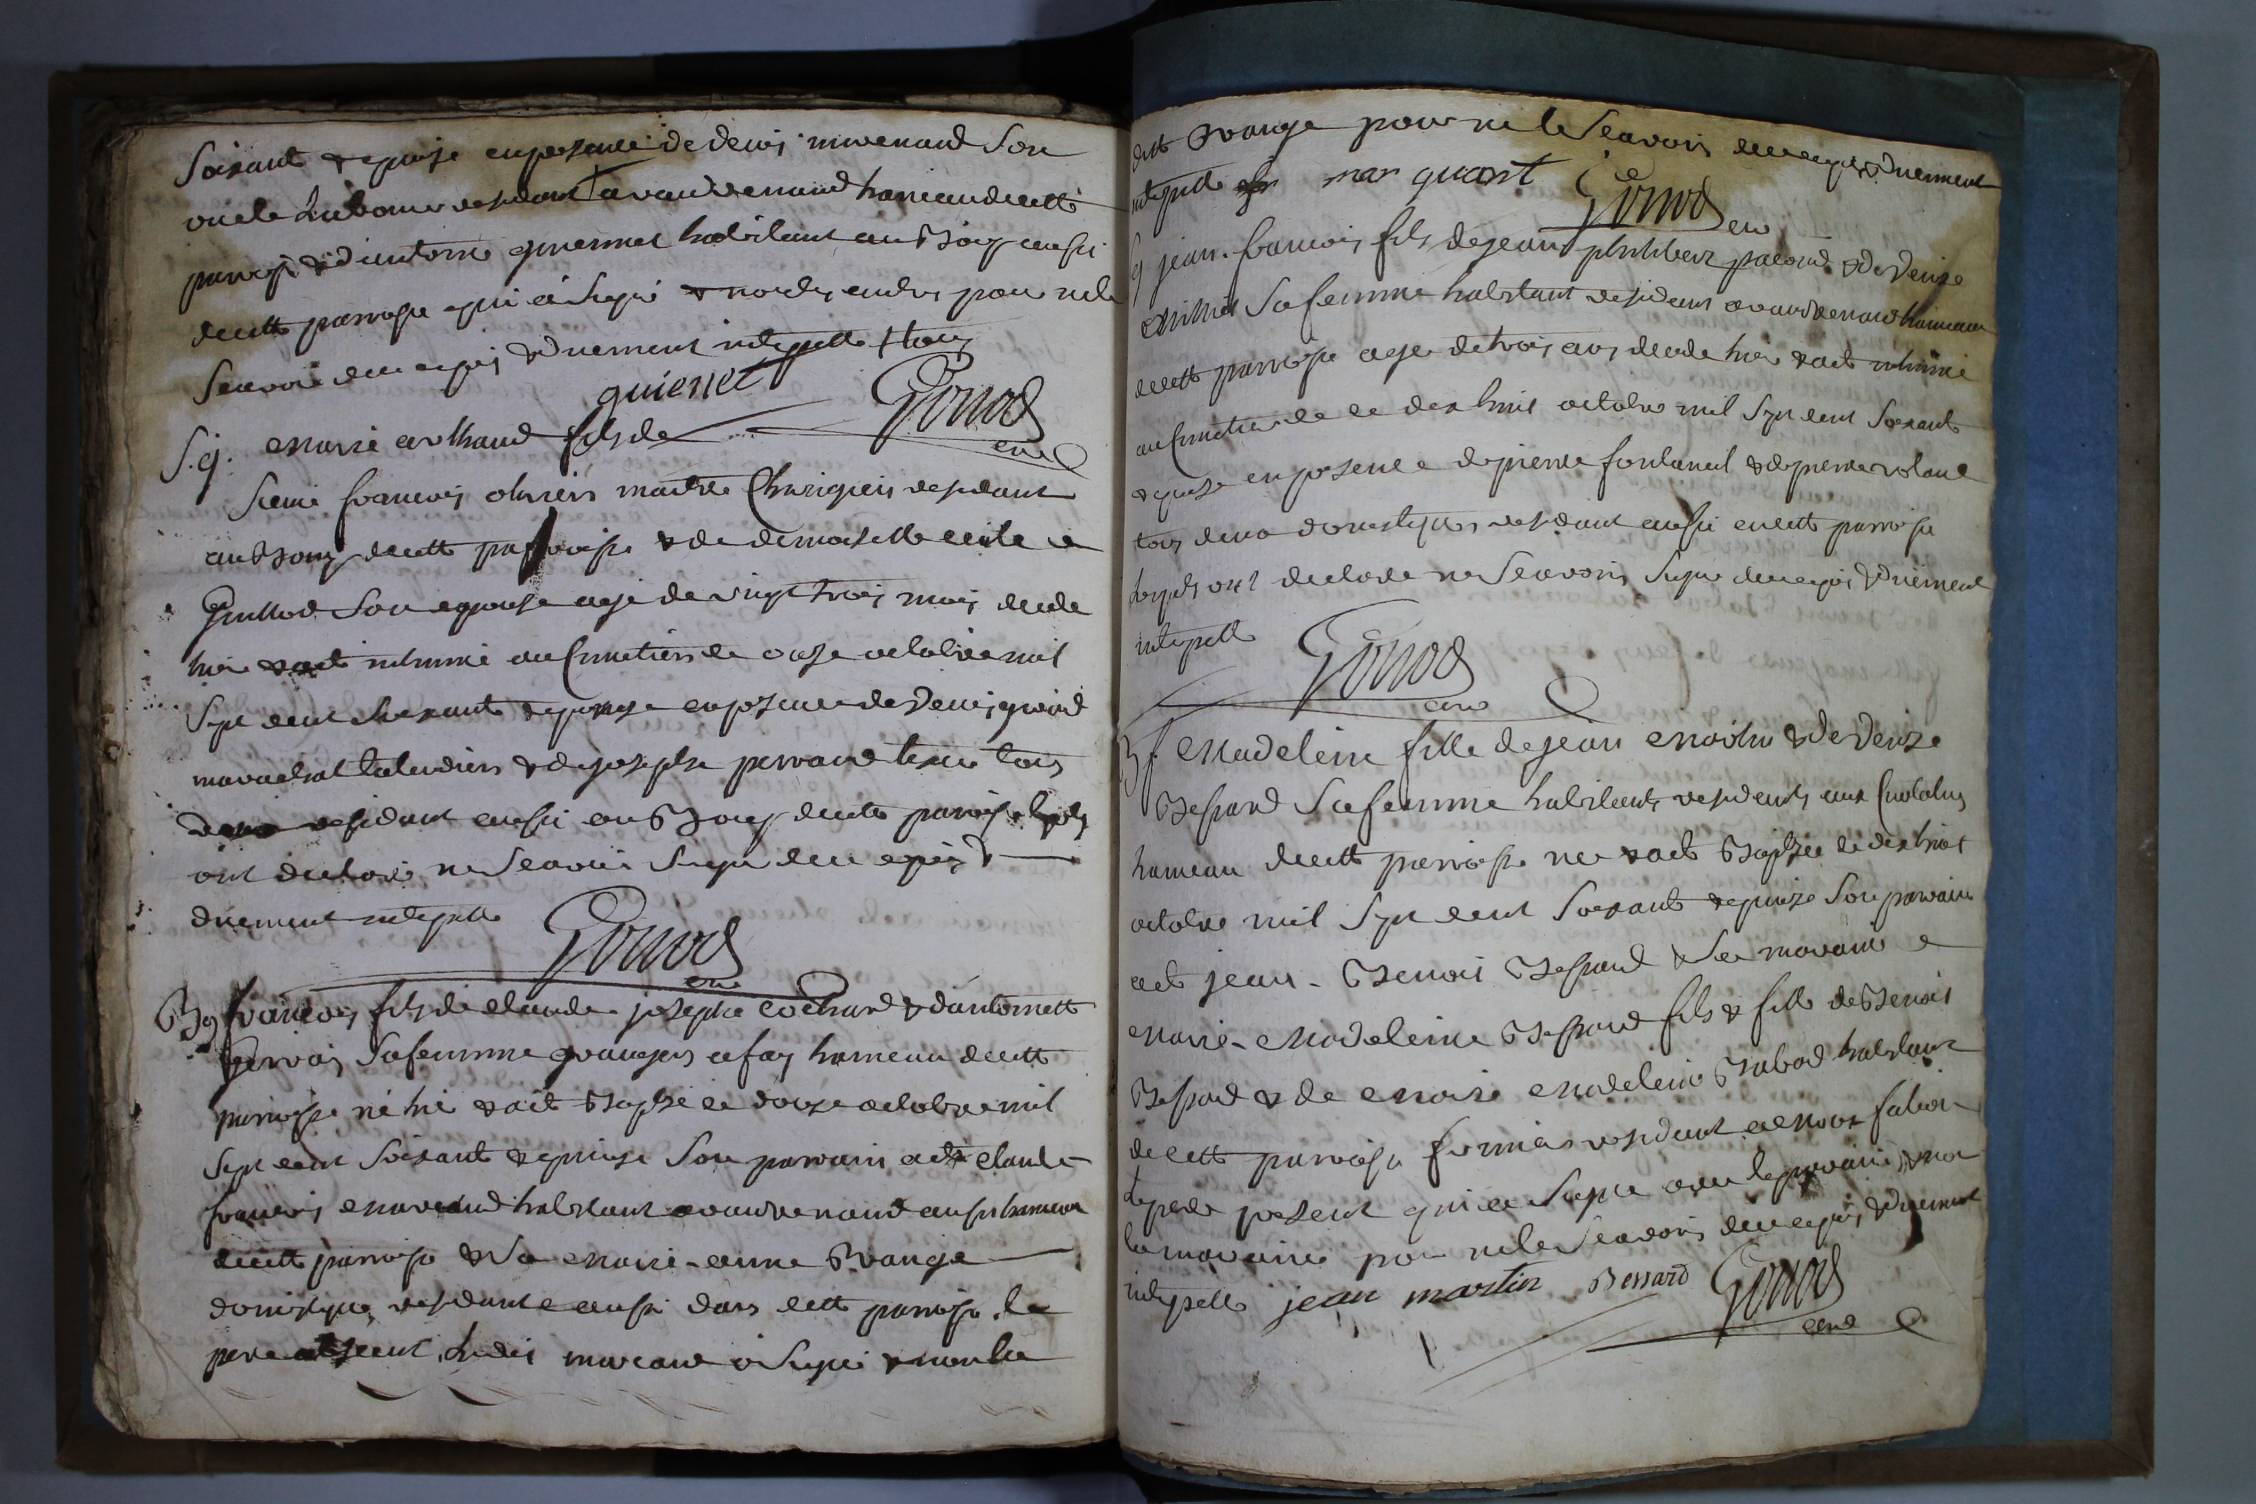 soixante & quinze en presence de denis mivenand son
oncle laboureur residant a vauxrenand hameau de cette
parroisse & d'antoine guiennet habitant au bourg aussi
de cette parroisse qui a signé & non les autres pour ne le
sçavoir de ce enquis & duement interpellé tous
guiennet Gonod curé
S.g. marie arthaud fils de
sieur francois olivier maitre chirurgien residant
au bourg de cette parroisse & de demoiselle cecile
Guillod son epouse age de vingt trois mois decede
hier & acté inhumé au cimetiere le onze octobre mil
sept cent soixante & quinze en presence de denis grand
marechal talandier & de joseph perraud tixier tous
deux residant aussi au bourg de cette parroisse lesquels
ont declaré ne sçavoir signer de ce enquis &
duement interpellé Gonod curé
B g francois fils de claude joseph cochard & d'antoinette
gervais sa femme grangers a fay hameau de cette
parroisse né hier & acté baptisé le douze octobre mil
sept cent soixante & quinze son parrain a eté claude
francois marcand habitant a vauxrenand aussi hameau
de cette parroisse & sa marie-anne Brange
domestique residante aussi dans cette parroisse le
pere absent, ledit marcand a signé & non la
ditte Brange pour ne le sçavoir de ce enquis & duement
interpellé marquant Gonod curé
S g jean-francois fils de jean philibert pacoud & de denise
millet sa femme habitant residant a vauxrenand hameau
de cette parroisse age de trois ans decede hier & acté inhumé
au cimetiere le dix huit octobre mil sept cent soixante
& quinze en presence de pierre fontanel & de pierre roland
tous deux domestiques residant aussi en cette parroisse
lesquels ont declaré ne sçavoir signer de ce enquis & duement
interpellé Gonod curé
B f Madeleine fille de jean martin & de denise
Bessard sa femme habitants residents aux
hameau de cette parroisse née & acté baptisée le dix huit
octobre mil sept cent soixante & quinze son parrain
a eté jean-Benois Bessard & sa maraine
marie-madeleine Bessard fils & fille de Benois
Bessard & de marie madeleine habitant
de cette parroisse fermier residant
le pere present qui a signé avec le parrain & non
la maraine pour ne le sçavoir de ce enquis & duement
interpellé jean martin Bessard Gonod
curé